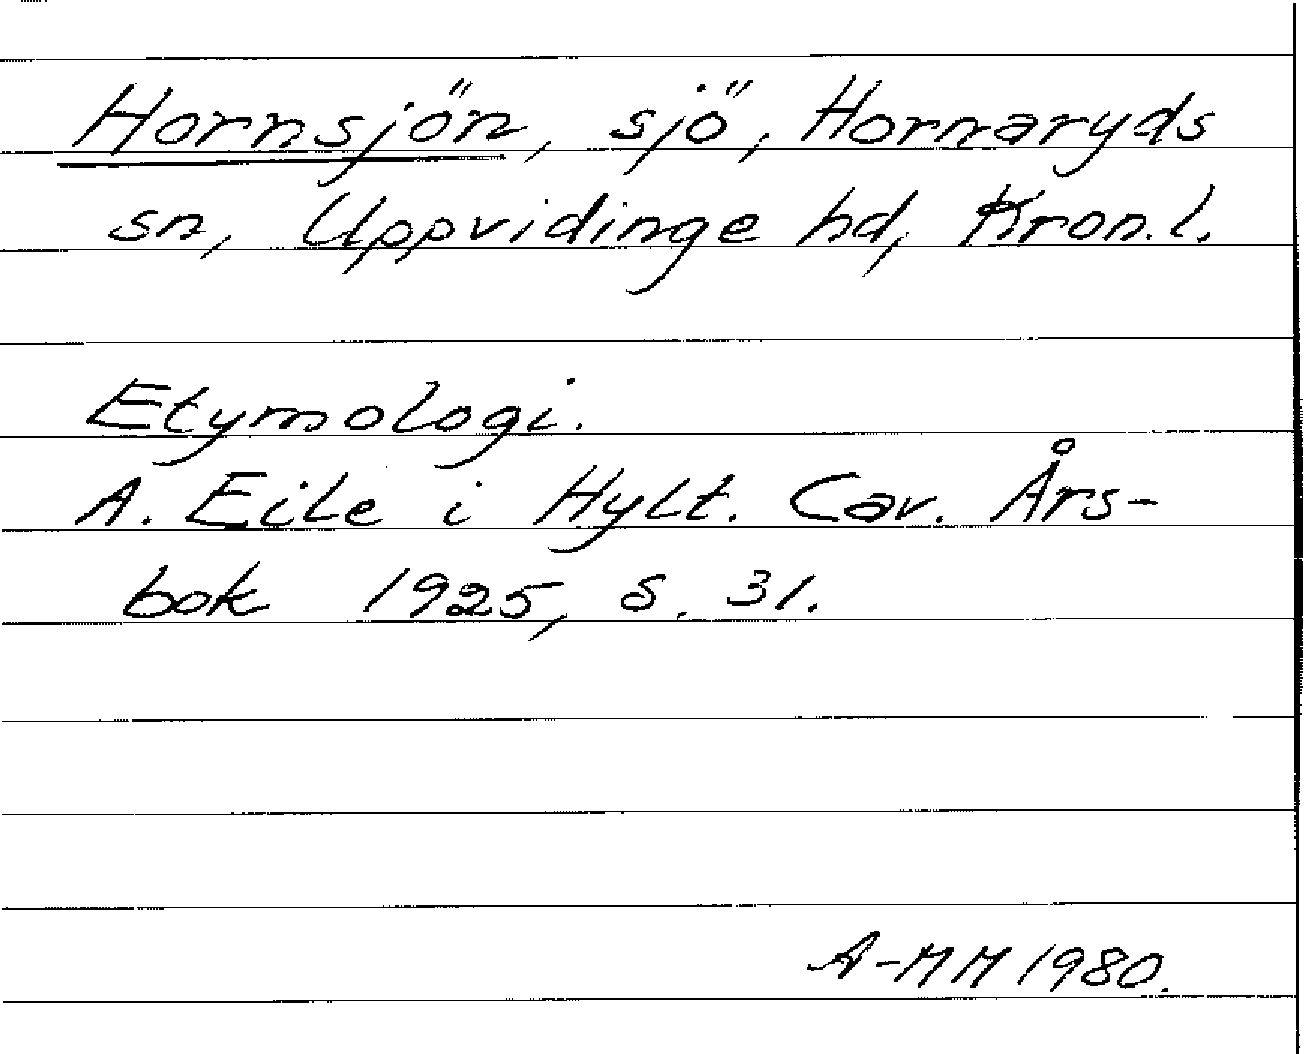 Hornsjön, sjö, Hornaryds
sn, Uppvidinge hd, Kron. l.
Etymologi.
A. Eile i Hylt. Cav. Års-
bok 1925, s. 31.
A-MM 1980.